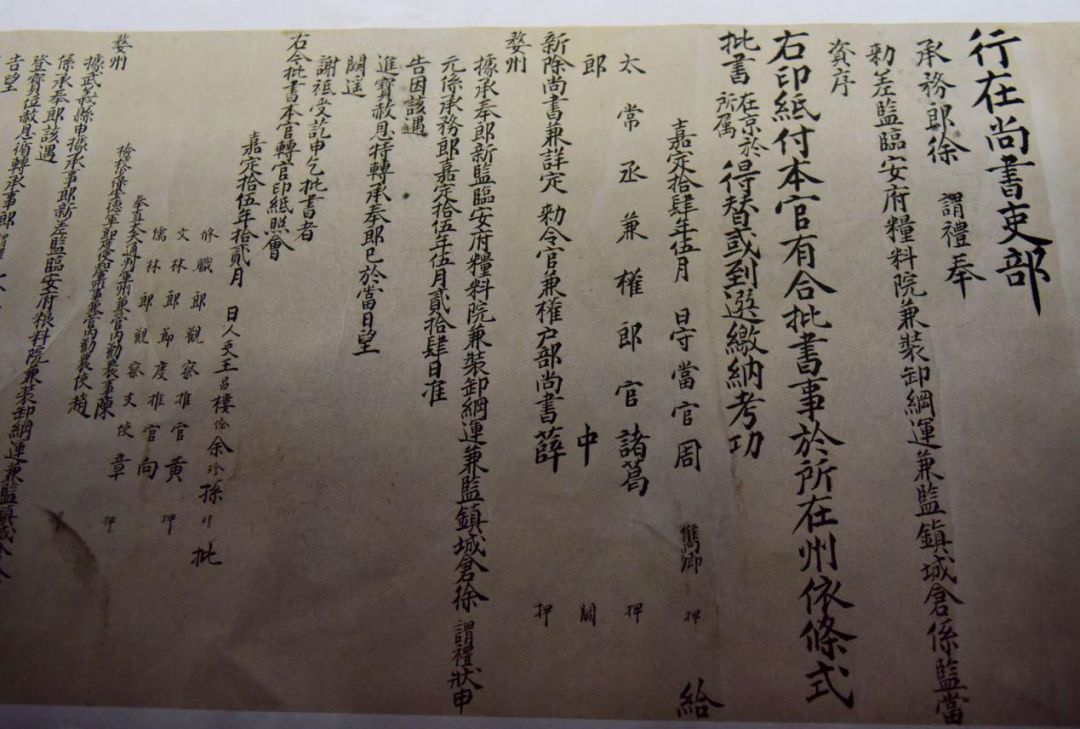 行在尚書吏部
承務郎徐 謂禮奉
勑差監臨安府糧料院兼裝卸綱運兼監鎮城倉係監當
資序
右印紙付本官有合批書事於所在州依條式
批書 在京於所屬 得替或到選繳納考功
嘉定拾肆年伍月 日守當官周 雋卿 押 給
太常丞兼權郎官諸葛 押
郎中 闕
新除尚書兼詳定 勑令官兼權户部尚書薛 押
婺州
據承奉郎新監臨安府糧料院兼裝卸綱運兼監鎮城倉徐 謂禮狀申
元係承務郎嘉定拾伍年伍月貳拾肆日准
告因該遇
進寶赦恩特轉承奉郎已於當日望
闕遥
謝祗受訖申乞批書者
右今批書本官轉官印紙照會
嘉定拾伍年拾貳月 日人吏王吕樓 余 孫 批
修職郎觀察推官黃 押
文林郎節度推官向
儒林郎觀察支使章 押
奉直大夫通判軍州兼管内勸農事陳
趙 押
婺州
據武義縣申據承事郎新差監臨安府粮料院兼裝卸綱運兼監鎮城倉
係承奉郎該遇
登寶位赦恩循轉承事郎
告望